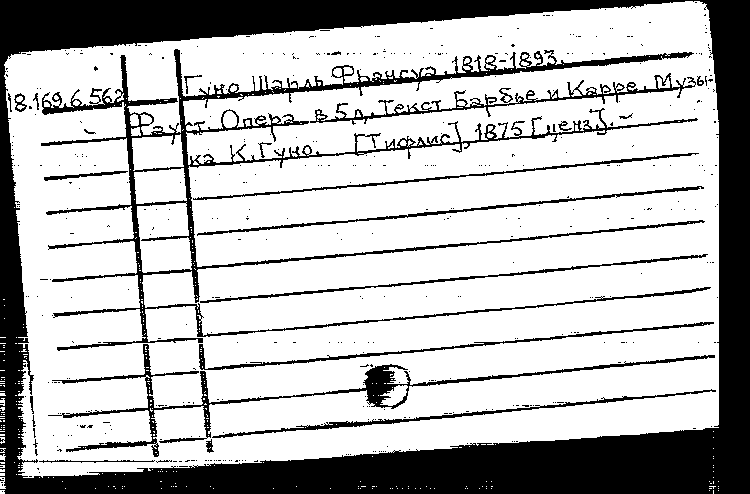 Гуно, Шарль Франсуа, 1818-1893.
18.169.6.562
Фауст. Опера в 5 д. Текст Барбье и Карре. Музы-
ка К. Гуно. [Тифлис], 1875 [ценз.]. –